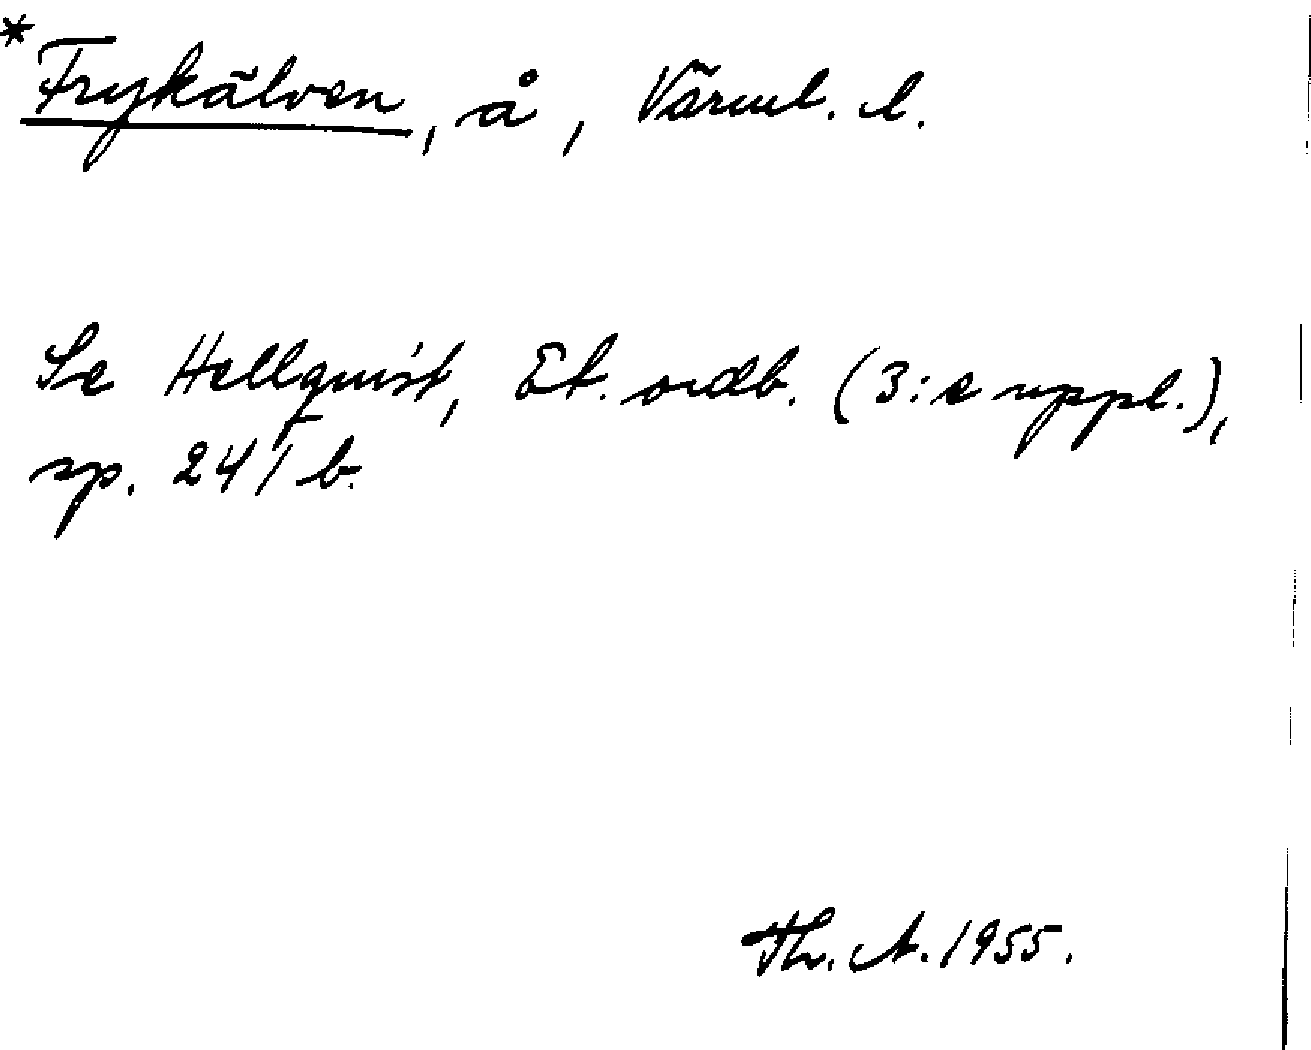 *Frykälven, å, Värml. l.
Se Hellquist, Et. ordb. (3:e uppl.),
sp. 241 b.
Th. A. 1955.